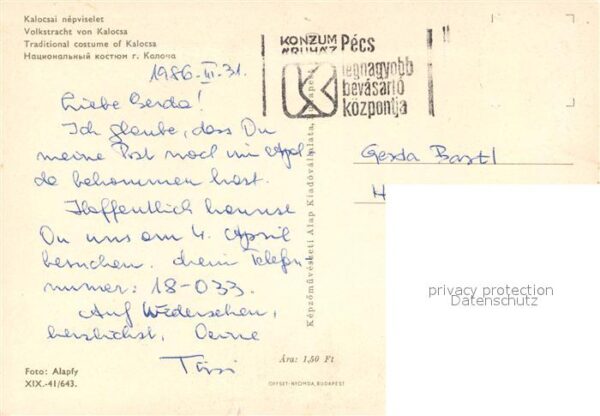 Kalocsai népviselet
Volkstracht von Kalocsa
Traditional costume of Kalocsa
Национальный костюм г. Калоча
KONZUM
ÁRUHÁZ
Pécs
legnagyobb
bevásárló
központja
1986. III. 31.
Liebe Gerda!
Ich glaube, dass Du
meine Post noch im April
da bekommen hast.
Hoffentlich kannst
Du uns am 4. April
besuchen. Mein Telefon
numer: 18-033.
Auf Wiedersehen,
herzlichst, Deine
Gerda Bastl
H
Képzőművészeti Alap Kiadóvállalata, Budapest
privacy protection
Datenschutz
Foto: Alapfy
XIX.-41/643.
Ára: 1,50 Ft
OFFSET-NYOMDA, BUDAPEST